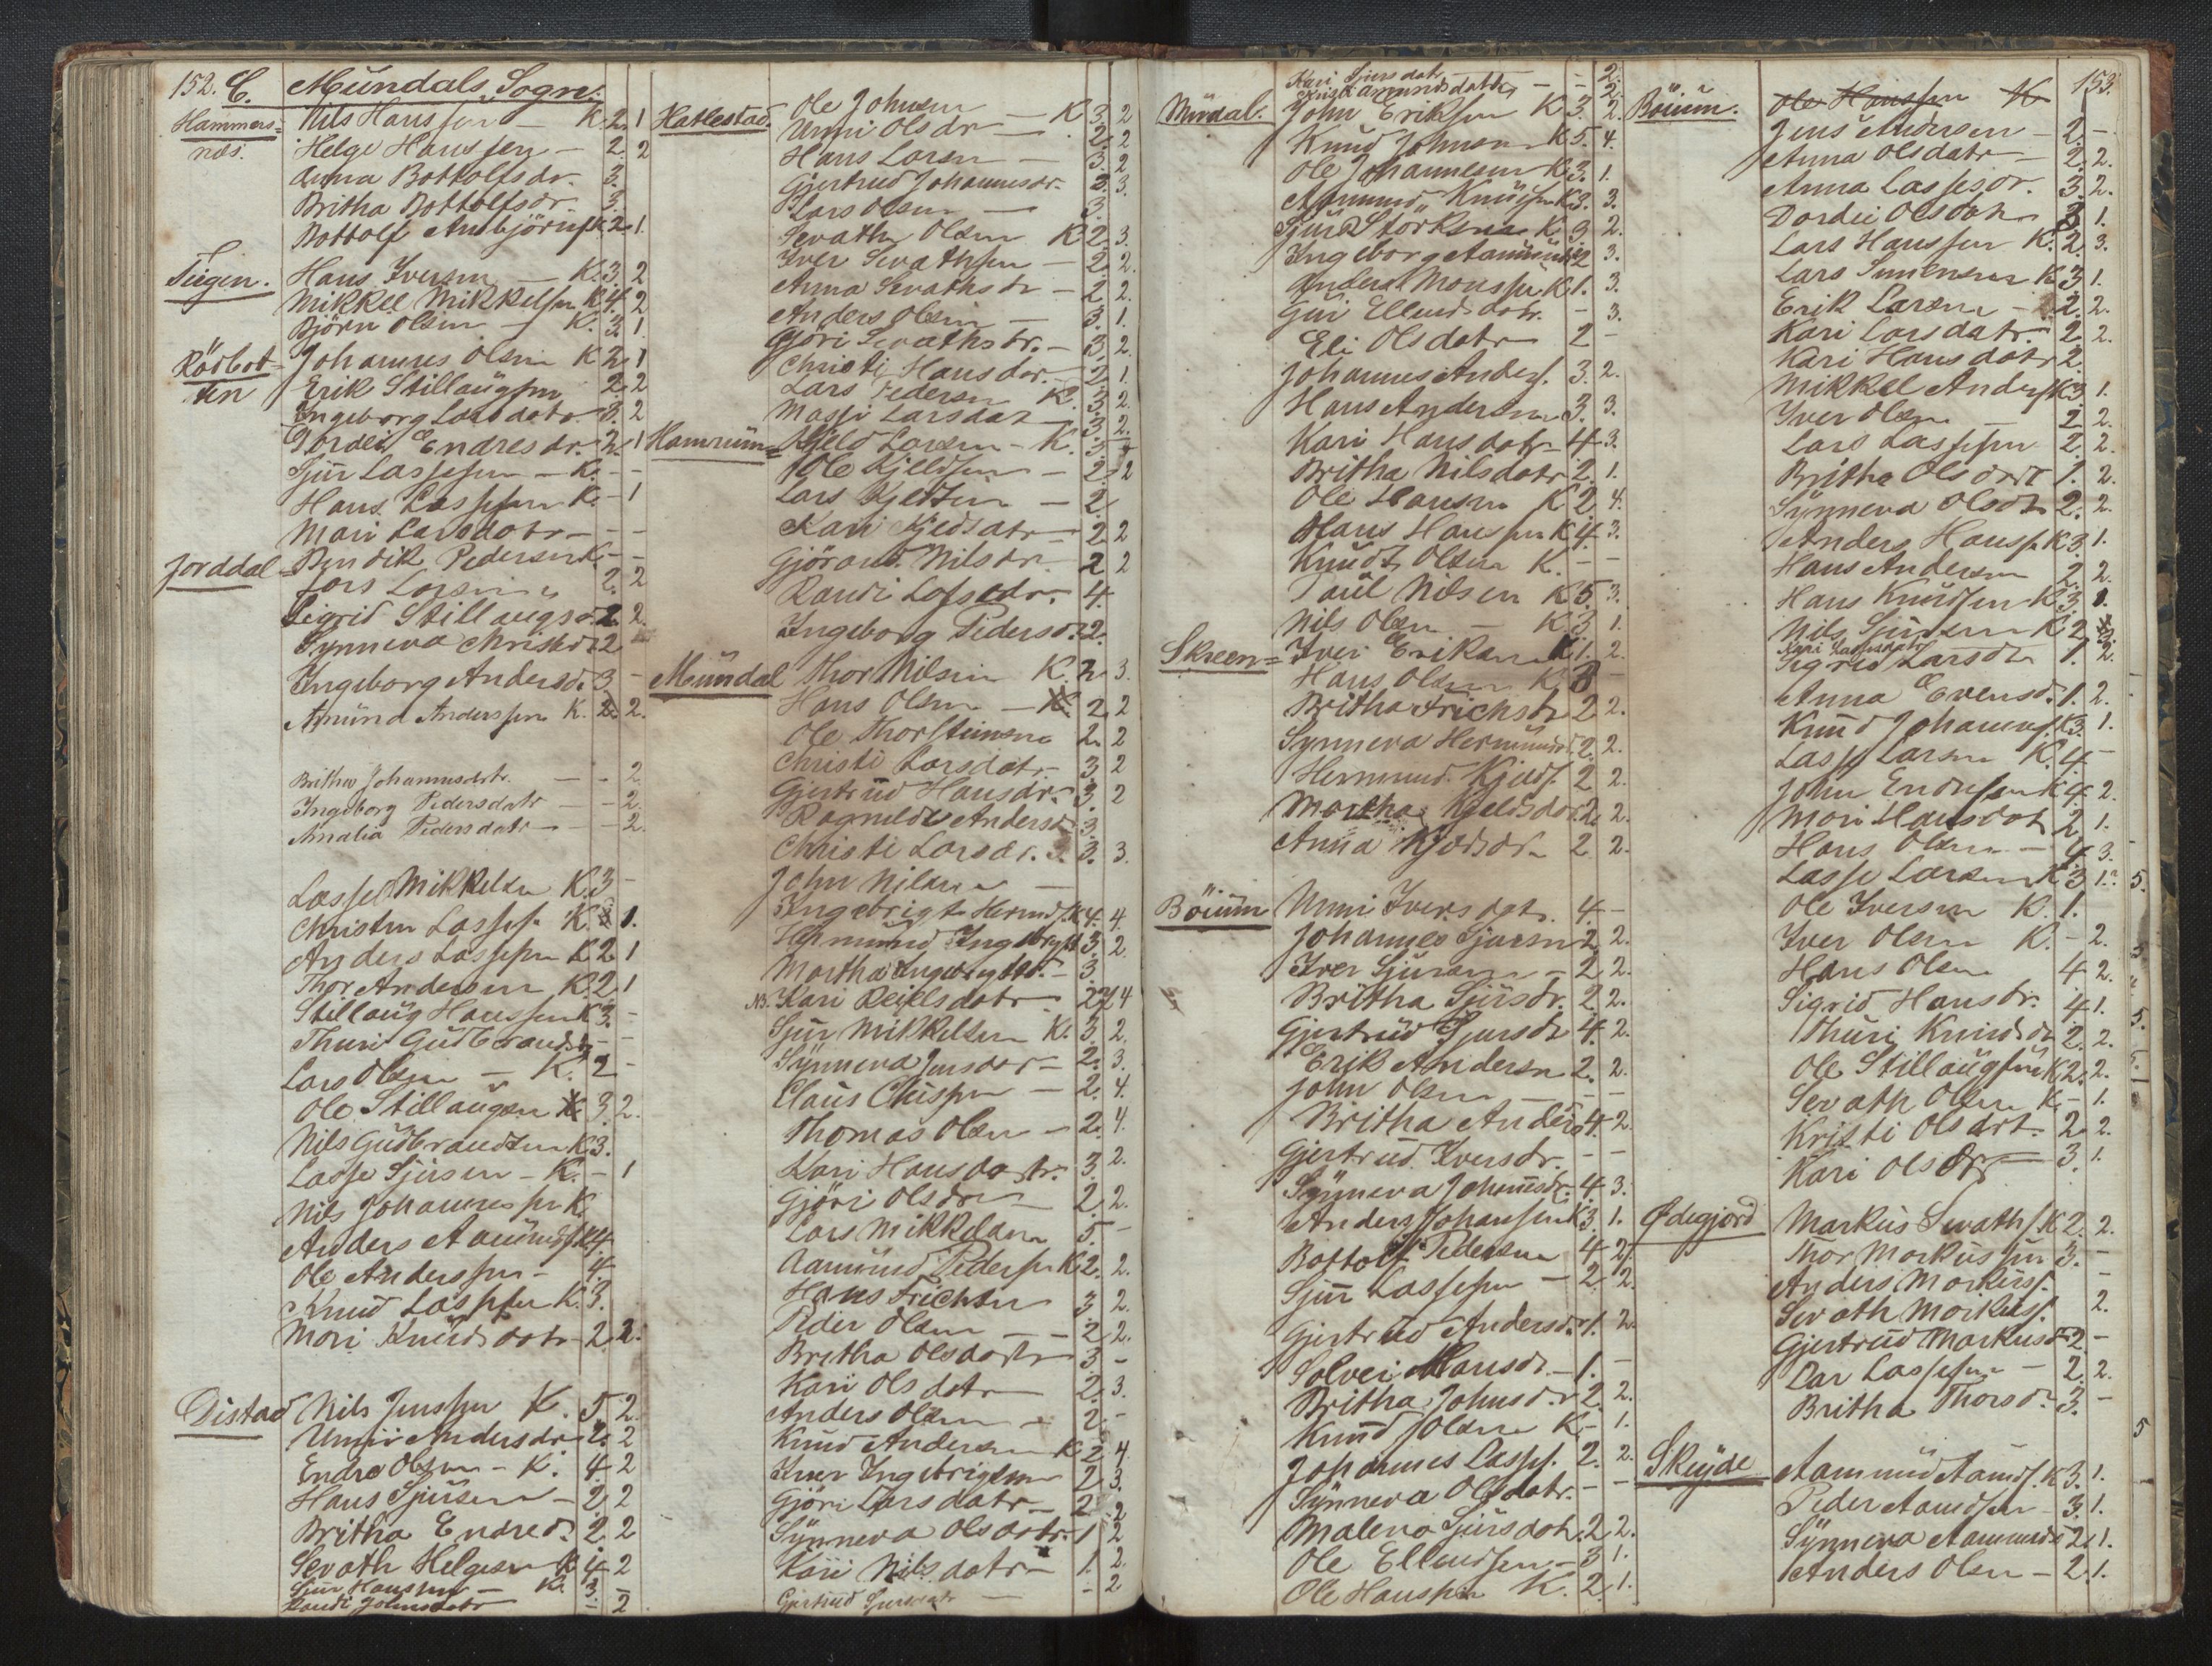 152. C. Mündals Sogn.
Hammers= Nils Hanssen — K. 2. 1
næs. Helge Hanssen — 2. 2
Anna Bottolfsdr. 3.
Britha Bottolfsdr. 3.
Bottolf Anbjörns. K. 2. 1.
Tügen. Hans Iversen — K. 3. 2
Mikkel Mikkelsen K. 4. 2
Björn Olsen — K. 3. 1.
Rödbot= Johannes Olsen K 2. 1
ten Erik Stillaugsen 2. 2
Ingeborg Larsdatr. 3. 2
Dordei Endresdr. 2. 1
Sjur Lassesen — K. - -
Hans Lassesen K. - 1
Mari Larsdatr — - -
Jorddal= Bendik Pedersen K. - -
Lars Larsen 2. 2
Sigrid Stillaugsd. 2. 2.
Synneva Christsdr 2
Ingeborg Andersd. 3 -
Amünd Anderssen K. 2. 2.
Britha Johannesdatr. — - 2
Ingeborg Pedersdatr — - 2.
Amalia Pedersdatr — - 2.
Lasse Mikkelsen K. 3 -
Christen Lasses. K. 3 1.
Anders Lassesen K 2 1
Thor Andersen K. 2. 1
Stillaug Hanssen K 3. -
Thuri Gudbrandsdr - -
Lars Olsen — K. 2 -
Ole Stillaugsen K 3. 2.
Nils Gudbrandsen K 3.
Lasse Sjursen — K. - 1
Nils Johannessen K.
Anders Aamunds. K 4.
Ole Anderssen — 4.
Knud Lassesen K. 3.
Mari Knudsdatr 2. 2.
Distad Nils Jenssen K. 5 2.
Unni Andersdr 2. 2
Endre Olsen — K. 4. 2
Hans Sjursen — 2. 2
Britha Endresd. 2. 2
Sevath Helgesen K 4. 2
Sjur Hanssen — K. 3. -
Randi Johnsdatr - 2.
Hatlestad. Ole Johnsen — K 3. 2
Unni Olsdr — 2. 2
Hans Larsen — 3. 2
Gjertrud Johannesdr. 3. 3.
Lars Olsen — 3.
Sevath Olsen K 2. 3.
Iver Sevathsen — 2. 2.
Anna Sevathsdr — 2. 2.
Anders Olsen — 3. 1.
Gjöri Sevathsdr. — 3. 2.
Christi Hansdatr. — 2. 1.
Lars Pedersen K. 3. 2.
Massi Larsdatr 3. 2.
Hamrum= Kjeld Larsen — K. 3
Ole Kjeldsen — 2. 2
Lars Kjeldsen — 2.
Kari Kjeldsdatr — 2. 2
Gjörond Nilsdr. 2 2
Randi Lassedr. 4.
Ingeborg Pedersd. 2.
Mündal Thor Nilsen K. 2 3.
Hans Olsen — K. 2. 2
Ole Thorsteinsen 2. 2
Christi Larsdatr. 3. 2
Gjertrud Hansdr. 3. 2
Ragnilde Andersd. 3.
Christi Larsdr. 3. 3.
John Nilsen —
Ingebrigt Hermds. K 4. 4.
Hermund Ingebrigts. 3. 2.
Martha Ingebrigtsd. — 3.
NB. Kari Reielsdatr 2 4
Sjur Mikkelsen K. 3. 2.
Synneva Jensdatr — 2. 3.
Claus Clausen — 2. 4.
Thomas Olsen — 2. 4.
Kari Hansdatr. 3. 2.
Gjöri Olsdr — 2. 2.
Lars Mikkelsen 5. -
Aamund Pedersen K 2. 2.
Hans Erichsen 3. 2.
Peder Olsen — 2. 2.
Britha Olsdatr 3 -
Kari Olsdatr 2. 3.
Anders Olsen — 2. -
Knud Andersen K 2. 4.
Iver Ingebrigtsen 2. 3.
Gjöri Larsdatr — 2. 2
Synneva Olsdatr. 1 2
Kari Nilsdatr — 1. 2.
Gjertrud Sjursdatr — - 2
Kari Sjursdatr — - 2.
Christi Amundsdatter — - 2.
Mündal. John Eriksen K 3. 2.
Knud Johnsen K 5. 4.
Ole Johannesen K 3. 1.
Aamund Knudsen K 3. 3.
Sjur Storksen K 3 2.
Ingeborg Aamundsd. 2 3.
Anders Monssen K 1. 3.
Guri Ellendsdatr. - 3.
Eli Olsdatr 2 -
Johannes Anders. 3. 2.
Hans Andersen 3. 3.
Kari Hansdatr 4 3.
Britha Nilsdatr 2. 1.
Ole Hansen K 2. 4.
Hans Hanssen K 4. 3.
Knudt Olsen K. - -
Paul Nilsen K 5. 3.
Nils Olsen — K 3. 1.
Skreen= Iver Eriksen K 1. 2.
Hans Olsen K 3 -
Britha Erichsdr 2 2.
Synneva Hermundsd. 2. 2.
Hermund Kjelds. 2 2.
Martha Kjeldsdatr 2. 2.
Anna Kjeldsdr 2. 2.
Böium Unni Iversdatr. 4. -
Johannes Sjursen 2. 2.
Iver Sjursen — 2. 2.
Britha Sjursdr. 2. 2.
Gjertrud Sjursdr 4. 2.
Erik Andersen 2. 2.
John Olsen — - -
Britha Andersd. 4. 2.
Gjertrud Iversdr. - -
Synneva Johannesdr. 4. 3.
Anders Johansen K 3. 1.
Bottolf Pedersen 4 2.
Sjur Lassesen — 2. 2.
Gjertrud Andersdr. 1. 2.
Solvei Hansdr. — 1. -
Britha Johnsdr 2. 2.
Knud Olsen K - 1.
Johannes Lasses. 2. 2.
Synneva Olsdatr. - -
Malena Sjursdatr. 2. 2.
Ole Ellendsen — 3. 1.
Ole Hanssen K. 2. 1.
153.
Böium. Ole Hanssen K
Jens Andersen — 2. -
Anna Olsdatr — 2. 2.
Anna Lassesdr. 3. 2.
Dordei Olsdatr 3 1.
Lars Hanssen K. 2. 3.
Lars Simensen K 3. 1.
Erik Larsen — 2. 2.
Kari Larsdatr. 2. 2.
Kari Hansdatr 2.
Mikkel Anders. K 3. 1.
Iver Olsen — 2. 2.
Lars Lassesen 2. 2.
Britha Olsdatr 1. 2.
Synneva Olsdr 2. 2.
Anders Hanss. K 3. 1.
Hans Andersen 2. 2.
Hans Knudsen K 3. 1.
Nils Sjursen K 2. 3.
Kari Lassesdatr
Sigrid Larsdr 1. 2.
Anna Evensd. 1. 2.
Knud Johannes. K 3. 1.
Lasse Larsen K. 4. -
John Endresen K 4. 2.
Mari Hansdatr 2. 1.
Hans Olsen — 4. 3.
Lasse Larsen K 3. 1.
Ole Iversen K. 1.
Iver Olsen K. - 2.
Hans Olsen 4. 2.
Sigrid Hansdr. 4. 1.
Thuri Knudsdr 2. 2.
Ole Stillaugsen K 2. 2.
Sevath Olsen K. - 1.
Kristi Olsdatr. 2. 2.
Kari Olsdr — 3. 1.
Ødegjord Markus Sevaths. K 2. 2.
Thor Markussen 3. -
Anders Markuss. -
Sevath Markuss. 2.
Gjertrud Markusd 2. -
Lar Lassesen — 2. 2.
Britha Thorsdr. 3. -
Skejde Aamund Aamds. K 3. 1.
Peder Aamdsen — 3. 1.
Synneva Aamundsd 2. 1.
Anders Olsen — 2. 1.